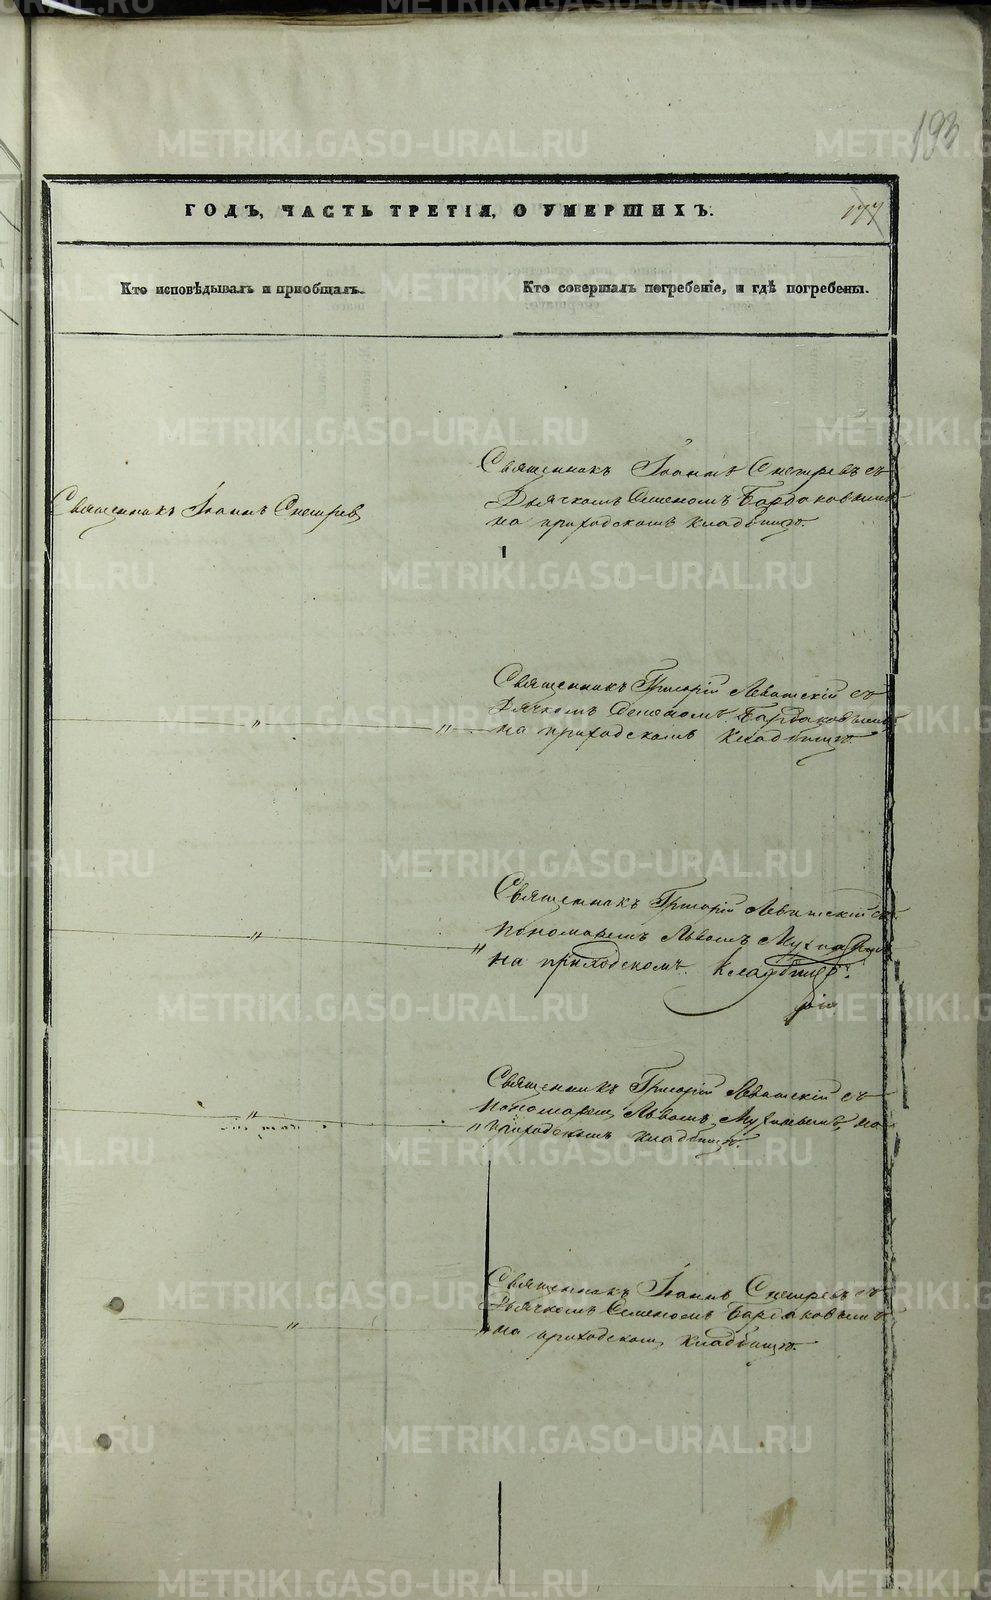 193
ГОДЪ, ЧАСТЬ ТРЕТІЯ, О УМЕРШИХЪ.
177
Кто исповѣдывалъ и пріобщалъ.
Кто совершалъ погребеніе, и гдѣ погребены.
Священникъ Іоаннъ Снегиревъ съ
Дьячкомъ Семеномъ Бардаковымъ
на приходскомъ кладбищѣ.
Священникъ Іоаннъ Снегирев
Священникъ Григорій Левитскій съ
Дьячкомъ Семеномъ Бардаковымъ
на приходскомъ кладбищѣ.
Священникъ Григорій Левитскій съ
пономаремъ Львомъ
на приходскомъ кладбищѣ.
Священникъ Григорій Левитскій съ
пономарем Львомъ на
приходскомъ кладбищѣ.
Священникъ Іоаннъ Снегиревъ съ
Дьячкомъ Семеномъ Бардаковымъ
на приходском кладбищѣ.
METRIKI.GASO-URAL.RU